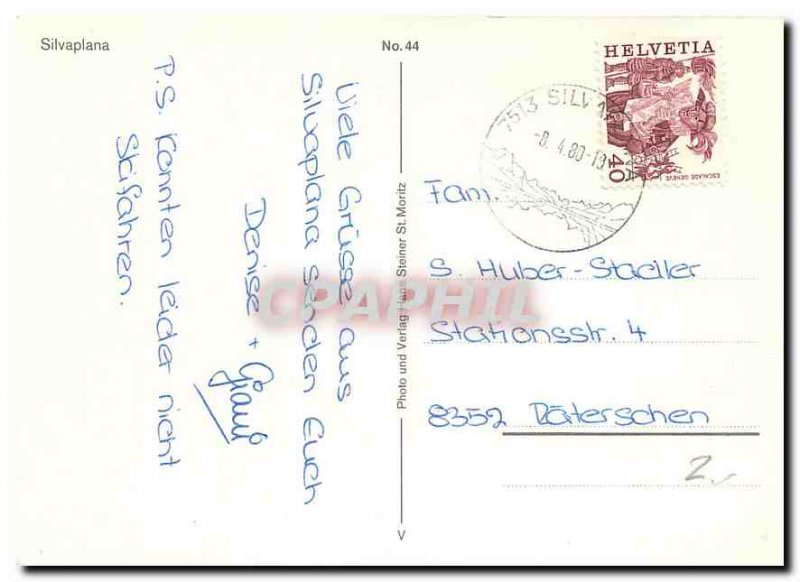 Silvaplana
No. 44
Viele Grüsse aus
Silvaplana senden Euch
Denise +
P.S. Konnten leider nicht
Skifahren.
Photo und Verlag Hans Steiner St. Moritz
V
HELVETIA
40
ESCALADE GENÈVE
7513 SILV
-8.4.80-19
Fam.
S. Huber-Stadler
Stationsstr. 4
8352 Räterschen
2.-
CPAPHIL